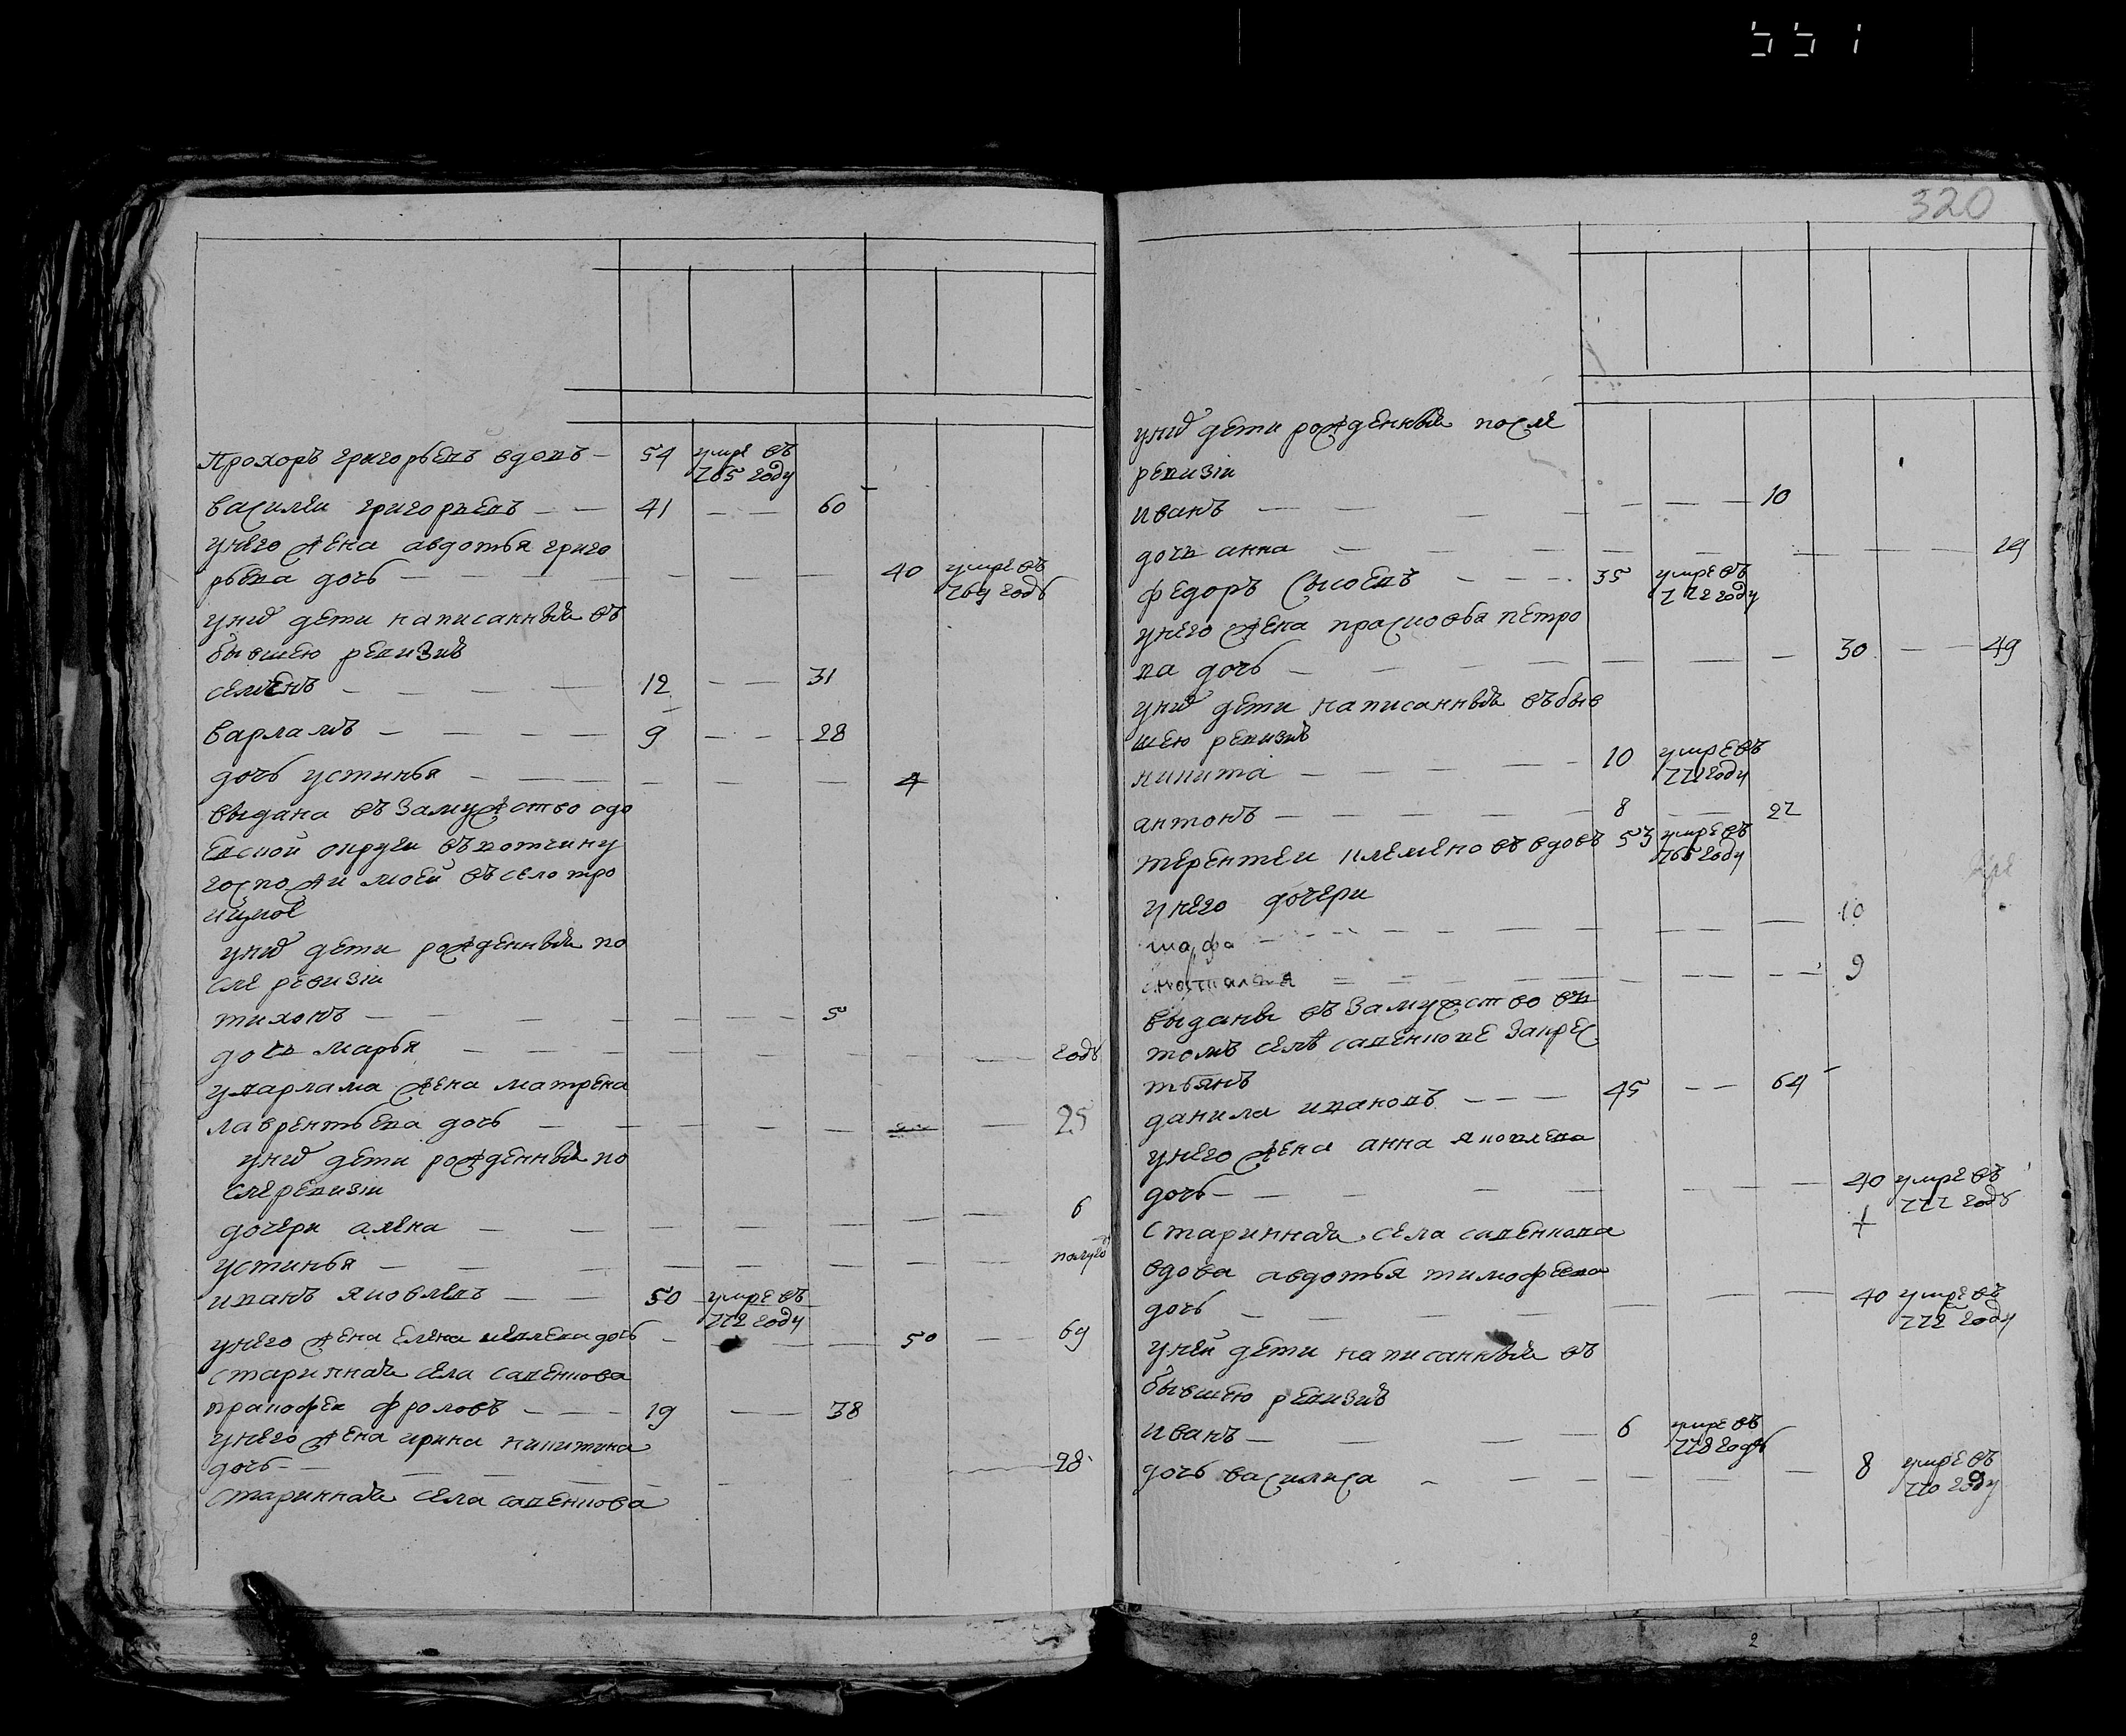 551
320
Прохоръ григорьевъ вдовъ — 54 умре въ
765 году
василеи григорьевъ — — 41 — — 60
унего жена авдотья григо
рьева дочь — 40 умре въ
769 годъ
унихъ дети написанныя въ
бывшею ревизиѣ
семенъ — 12 — — 31
варламъ — 9 — — 28
дочь устинья — 4
выдана въ замужство одо
евской округи въ вотчину
госпожи моей въ село тро
ицкое
унихъ дети рожденныя по
сле ревизіи
тихонъ — 5
дочь марья — годъ
уварлама жена матрена
лаврентьева дочь — 25
унихъ дети рожденныя по
сле ревизіи
дочери алена — 6
устинья — полуго
иванъ яковлевъ — — 50 умре въ
772 году
унего жена елена дочь — 50 — 69
стариннаи села савенкова
фроловъ — 19 — 38
унего жена ирина никитина
дочь — 28
стариннаи села савенкова
унихъ дети рожденныя после
ревизіи
иванъ — 10
дочь анна — 19
федоръ сысоевъ — 35 умре въ
772 году
унего жена прасковья петро
ва дочь — 30 — — 49
унихъ дети написанныя въ быв
шею ревизиѣ
никита — 10 умре въ
772 году
антонъ — 8 — 27
терентеи клеменовъ вдовъ 53 умре въ
765 году
унего дочери
марфа — 10
наталья — 9
выданы въ замужство въ
томъ селѣ савенкове за крес
тьянъ
данила ивановъ — 45 — — 64
унего жена анна яковлева
дочь — 40 умре въ
777 годъ
стариннаи села савенкова
вдова авдотья тимофеева
дочь — 40 умре въ
772 году
унеи дети написанныя въ
бывшею ревизиѣ
иванъ — 6 умре въ
778 годъ
дочь василиса — 8 умре въ
770 году
2